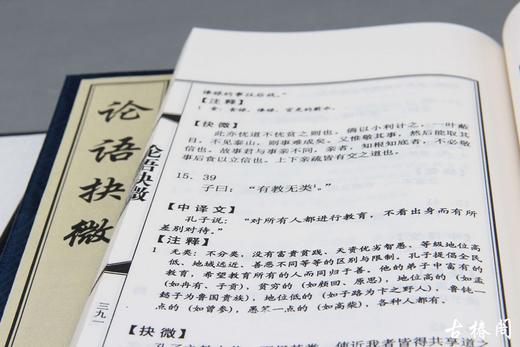 论语抉微
论语抉微
三九一
俸禄的事往后放。”
【注释】
1 食：食禄，俸禄，官吏的薪水。
【抉微】
此亦忧道不忧贫之则也。倘以小利计之，一叶蔽
目，不见泰山，则事难成矣。又惟敬其事，然后能取其
信也。故事君与事亲不同，亲者，知根知底者，不必敬
事后食以立信也。上下亲疏皆有交之道也。
15．39
子曰：“有教无类¹。”
【中译文】
孔子说：“对所有人都进行教育，不看出身而有所
差别对待。”
【注释】
1 无类：不分类，没有富贵贫贱、天资优劣智愚、等级地位高
低、地域远近、善恶不同等等的区别与限制。孔子提倡全民
教育，希望教育所有的人而同归于善。他的弟子中富有的
（如冉有、子贡），贫穷的（如颜回、原思），地位高的（如孟
懿子为鲁国贵族），地位低的（如子路为卞之野人），鲁钝一
点的（如曾参），愚笨一点的（如高柴），各种人都有。
【抉微】
使近我者皆得共享道之
古椿阁